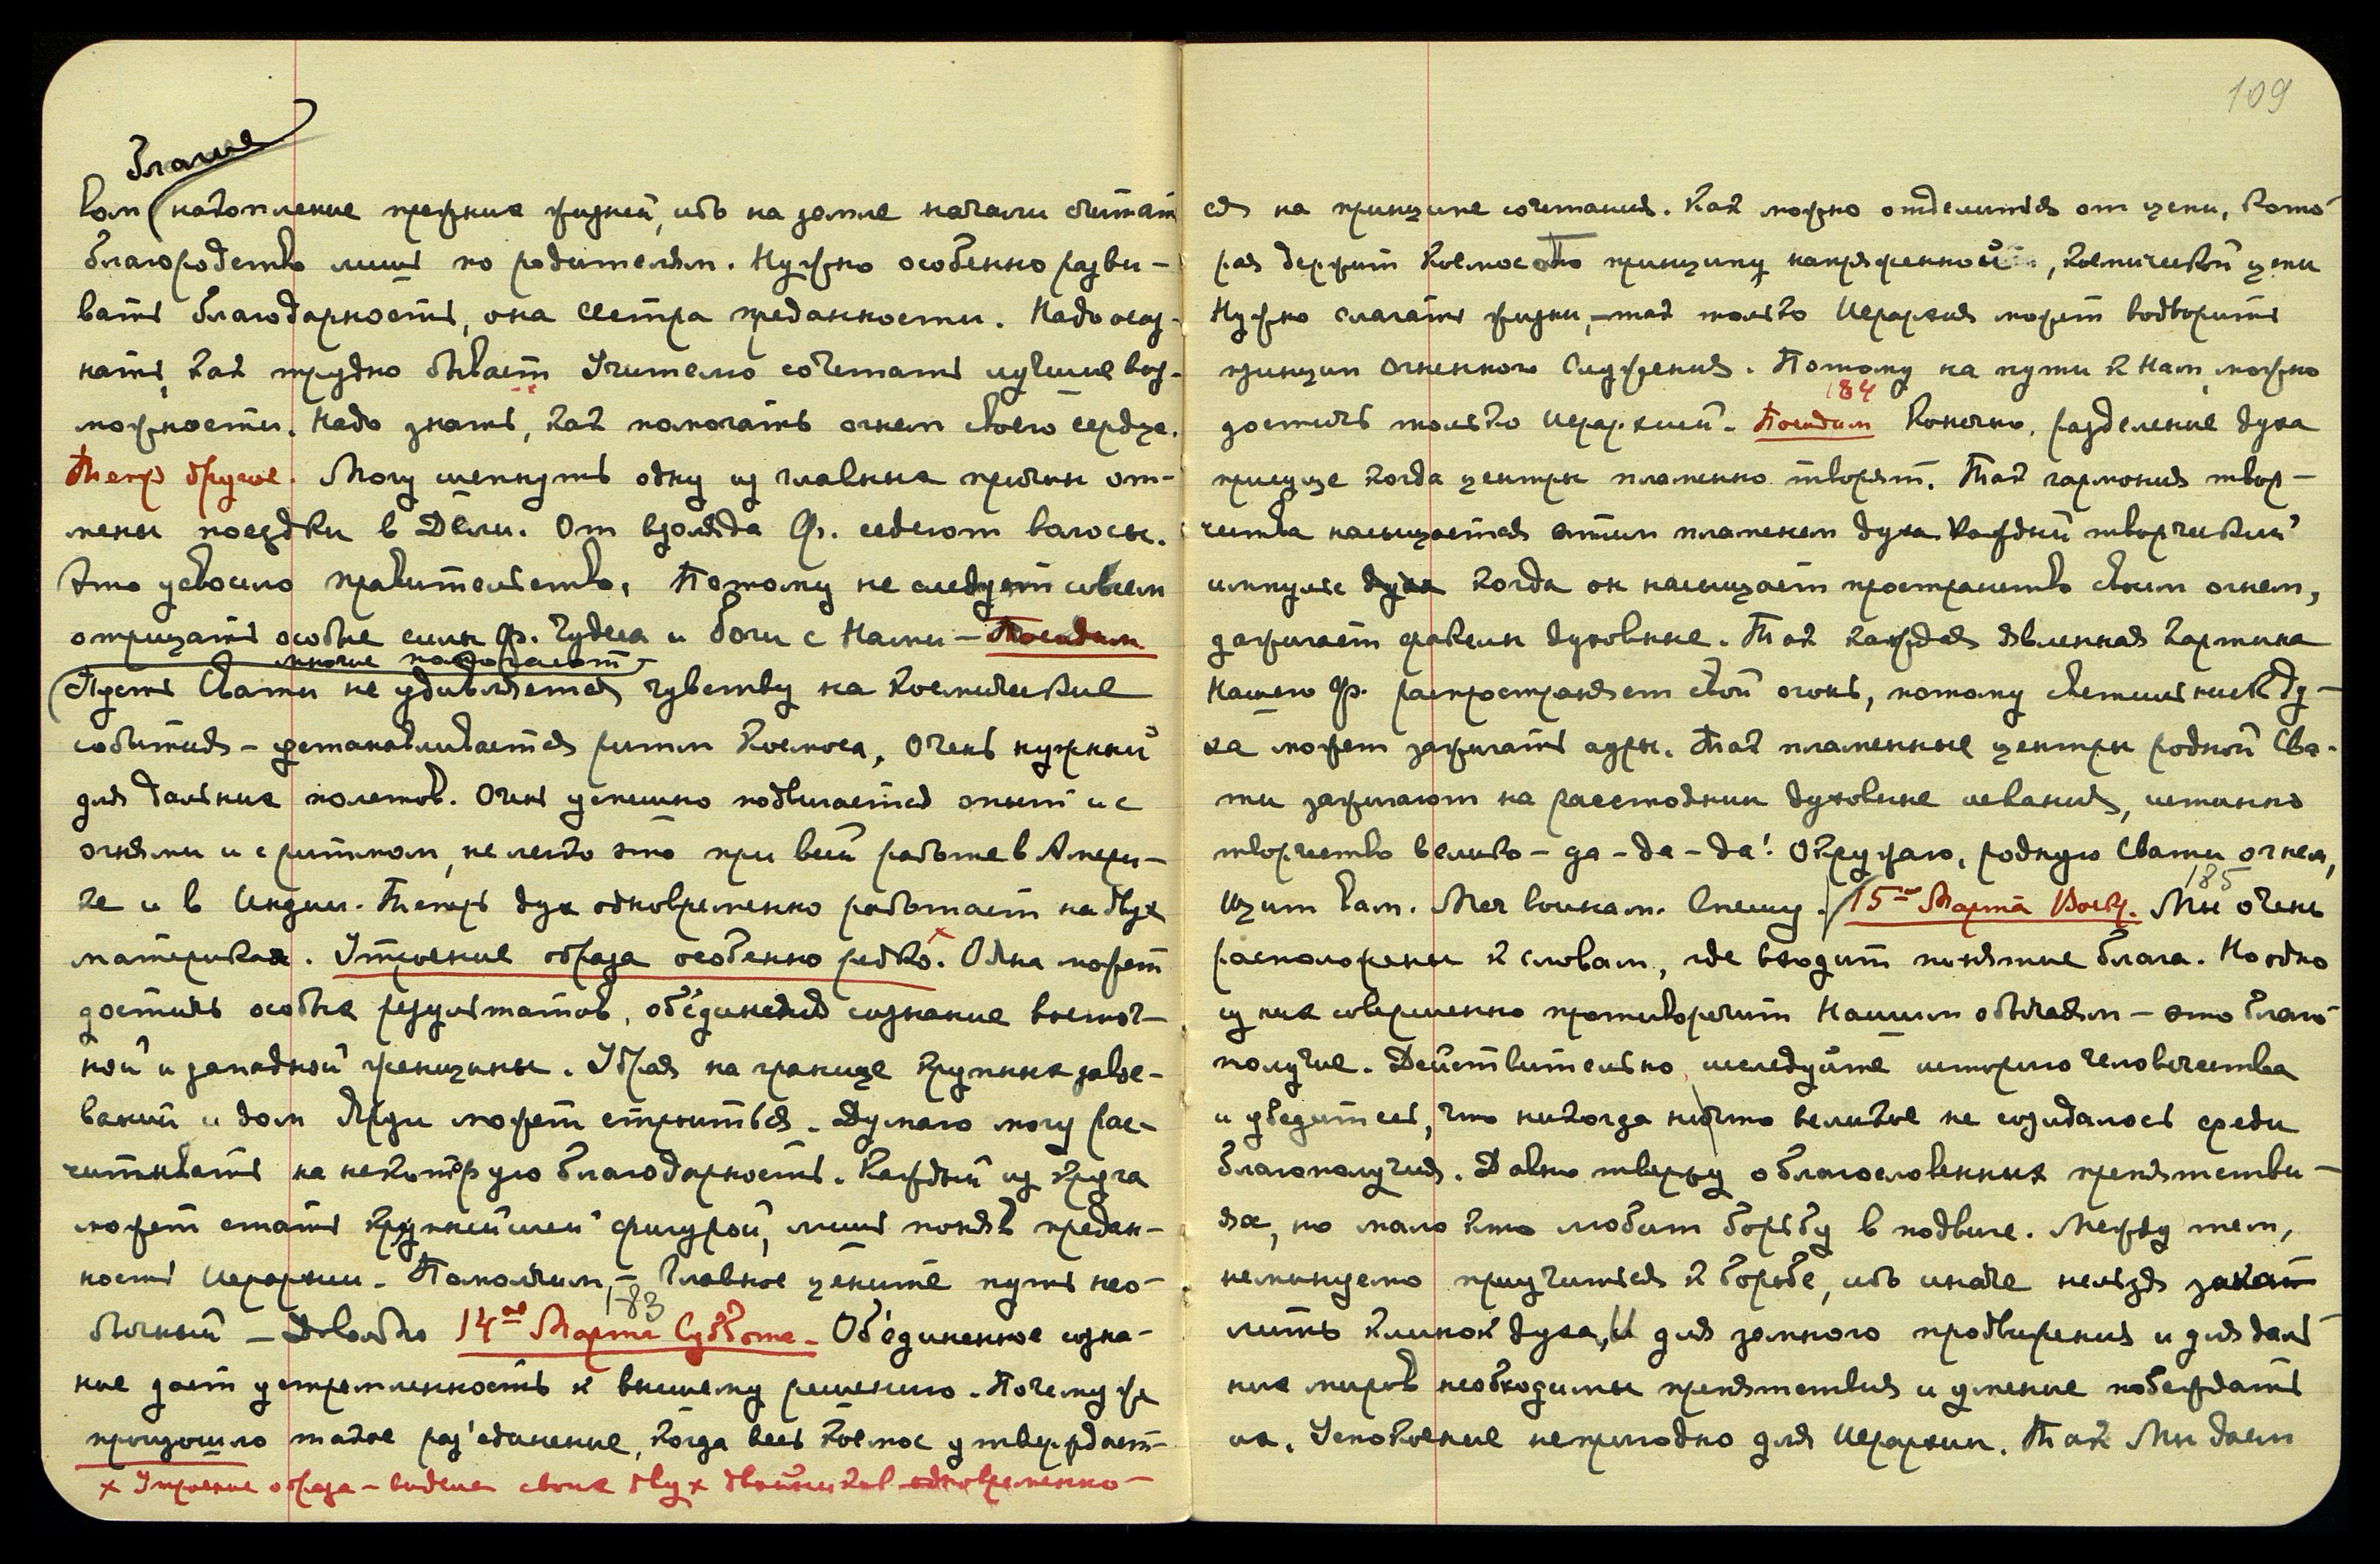 109
благие
вам накопление прежних жизней, ибо на земле начали считать
благородство лишь по родителям. Нужно особенно разви-
вать благодарность, она сестра преданности. Надо осоз-
нать, как трудно бывает Учителю сочетать лучшие воз-
можности. Надо знать, как помогать огнем своего сердца.
Теперь другое. Могу шепнуть одну из главных причин от-
мены поездки в Дели. От взгляда Ф. седеют волосы.
Это усвоило правительство. Потому не следует совсем
отрицать особые силы Ф. Чудеса и боги с Нами – Посидим
многие
Пусть Свати не удивляется чувству на космические
события – устанавливается ритм Космоса, очень нужный
для дальних полетов. Очень успешно подвигается опыт и с
огнями и с ритмом, не легко это при всей работе в Амери-
ке и в Индии. Теперь дух одновременно работает на двух
материках. Утроение образа особенно редко. х Одна может
достичь особых результатов, объединяя сознание восточ-
ной и западной женщины. Убрая на границе крупных завое-
ваний и дом Яруи может строиться. Думаю могу рас-
читывать на некоторую благодарность. Каждый из круга
может стать крупнейшей фигурой, лишь поняв предан-
ность Иерархии. Помолчим, – Главное цените путь нео-
183
бычный – Довольно 14го Марта Суббота. Объединенное созна-
ние дает устремленность к высшему решению. Почему же
произошло такое раз'единение, когда весь Космос утверждает-
х Утроение образа – видение своих двух двойников одновременно –
ся на принципе сочетания. Как можно отделиться от цепи, кото-
рая держит Космос по принципу напряженной, космической цепи
Нужно слагать жизни, – так только Иерархия может водворить
принцип Огненного Служения. Потому на пути к Нам, можно
184
достичь только Иерархией. Посидим Конечно, разделение духа
присуще когда центры пламенно творят. Так гармония твор-
чества насыщается этим пламенем духа. Каждый творческий
импульс духа когда он насыщает пространство своим огнем,
зажигает факелы духовные. Так каждая явленная картина
Нашего Ф. распространяет свой огонь, потому светильник ду-
ха может зажигать ядры. Так пламенные центры родной Сва-
ти зажигают на расстоянии духовные искания, истинно
творчество велико – да – да – да! Окружаю, родную Свати огнем,
185
Щит вам. Меч воинам. Спешу. 15го Марта Воскр. Мы очень
расположены к словам, где входит понятие блага. Но одно
из них совершенно противоречит Нашим обычаям – это благо-
получие. Действительно, исследуйте историю человечества
и убедитесь, что никогда ничто великое не созидалось среди
благополучия. Давно твержу о благословенных препятстви-
ях, но мало кто любит борьбу в подвиге. Между тем,
неминуемо приучиться к борьбе, ибо иначе нельзя закал-
лить клинок духа, И для земного продвижения и для даль-
них миров необходимы препятствия и умение побеждать
их. Успокоение непригодно для Иерархии. Так Мы даем